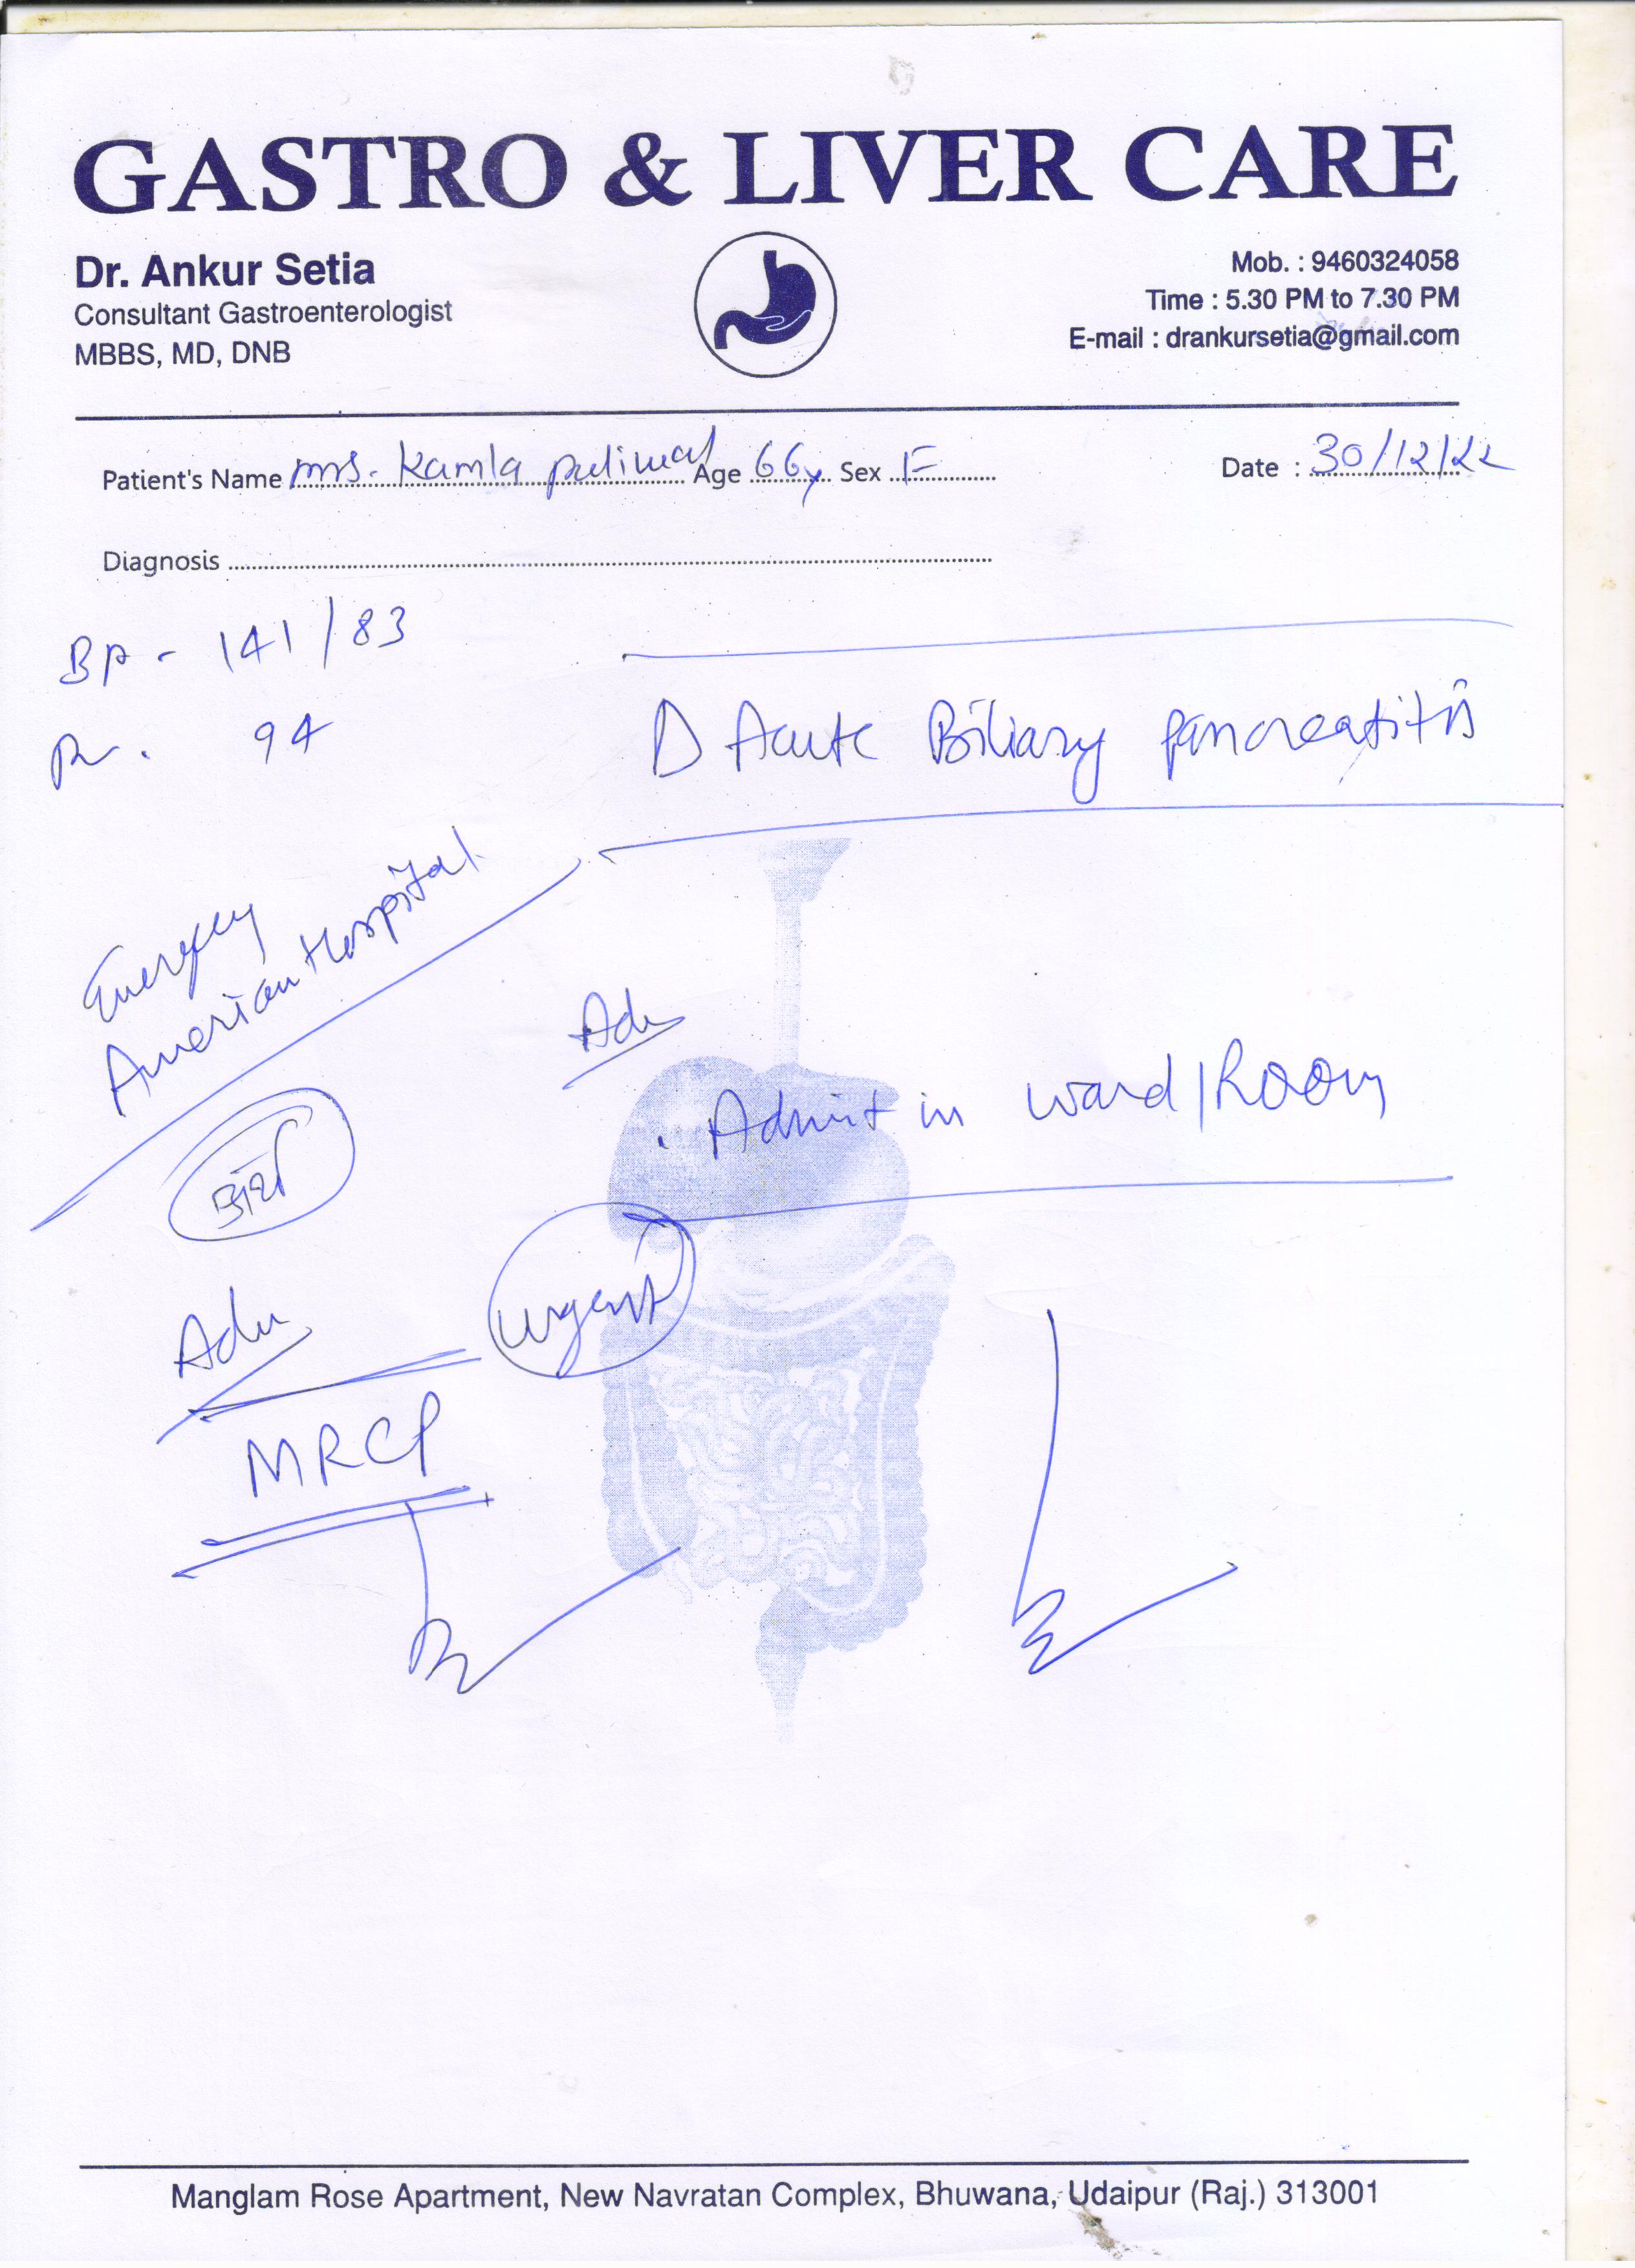 GASTRO & LIVER CARE
Dr. Ankur Setia
Consultant Gastroenterologist
MBBS, MD, DNB
Mob. : 9460324058
Time : 5.30 PM to 7.30 PM
E-mail : drankursetia@gmail.com
Patient's Name mrs. Kamla paliwal Age 66y Sex F
Date : 30/12/22
Diagnosis
BP - 141/83
94
Δ Acute Biliary pancreatitis
American Hospital
Adv
. Admit in ward/Room
urgent
Adv
MRCP
Manglam Rose Apartment, New Navratan Complex, Bhuwana, Udaipur (Raj.) 313001